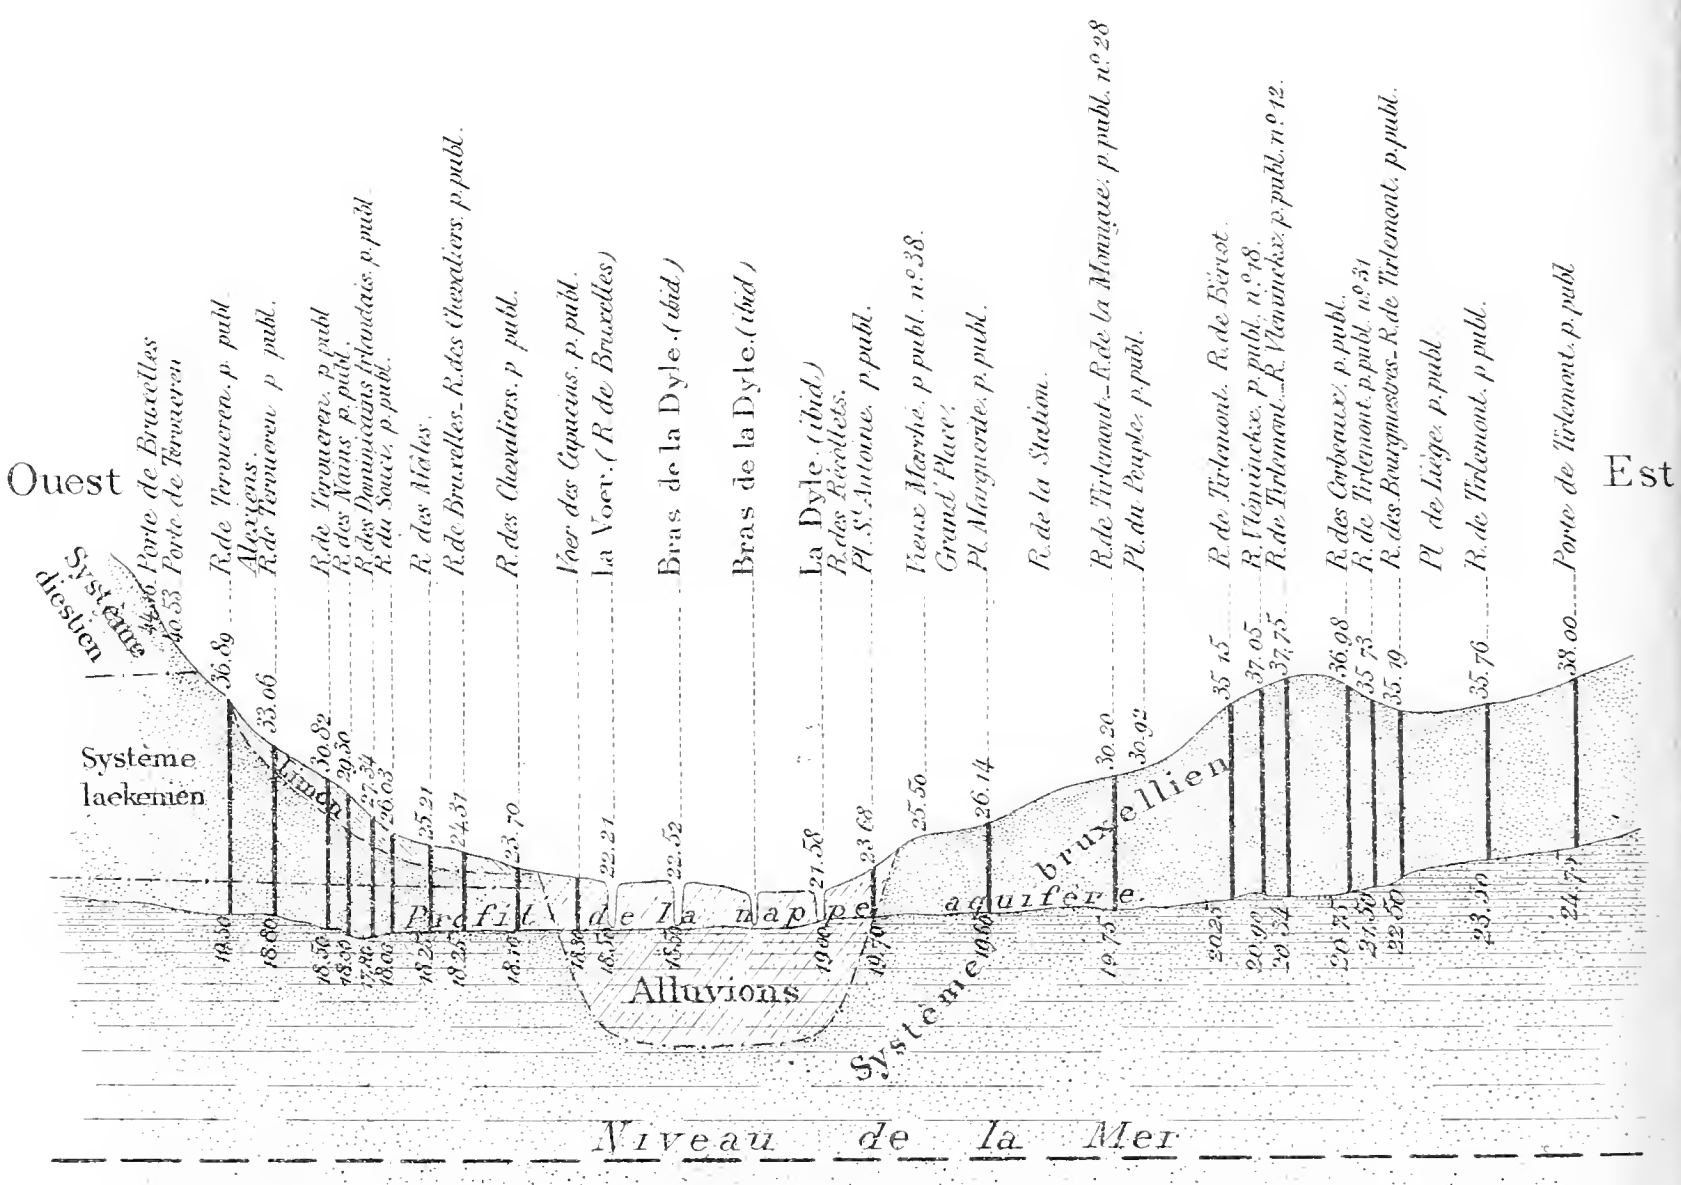 Ouest
Est
Porte de Bruxelles
Porte de Tervueren
R. de Tervueren. p. publ.
Alexiens.
R. de Tervueren p publ.
R. de Tervueren. p publ
R. des Nains p. publ.
R. des Dominicains Irlandais. p. publ.
R du Souci, p. publ.
R des Moles.
R. de Bruxelles_R. des Chevaliers. p. publ.
R. des Chevaliers. p publ.
Voer des Capucins. p. publ.
La Voer. (R. de Bruxelles)
Bras de la Dyle. (ibid)
Bras de la Dyle. (ibid)
La Dyle. (ibid)
R. des Récollets.
Pl. St. Antoine. p. publ.
Vieux Marché. p publ. nº 38.
Grand' Place.
Pl. Marguerite. p. publ.
R. de la Station.
R. de Tirlemont_R. de la Monnaie. p. publ. nº 28
Pl. du Peuple. p. publ.
R. de Tirlemont. R. de Bériot.
R. Vléminckx. p. publ. nº 18.
R. de Tirlemont_R. Vléminckx. p. publ. nº 12.
R. des Corbeaux. p. publ.
R. de Tirlemont. p. publ. nº 31
R. des Bourgmestres_R. de Tirlemont. p. publ.
Pl de Liége. p. publ
R. de Tirlemont. p publ.
Porte de Tirlemont. p. publ
44.36
40.53
36.89
33.06
30.82
29.30
27.34
26.03
25.21
24.31
23.70
22.21
22.52
21.58
23.68
25.50
26.14
30.20
30.92
35.15
37.05
37.75
36.98
35.73
35.19
35.76
38.00
Système
diestien
Système
laekenien
Limon
Système bruxellien
Profil de la nappe aquifère.
19.30
18.60
18.50
17.80
18.03
18.25
18.25
18.10
18.30
18.50
18.50
19.00
19.70
19.60
19.75
20.25
20.90
20.34
20.75
21.50
22.50
23.30
Alluvions
Niveau de la Mer